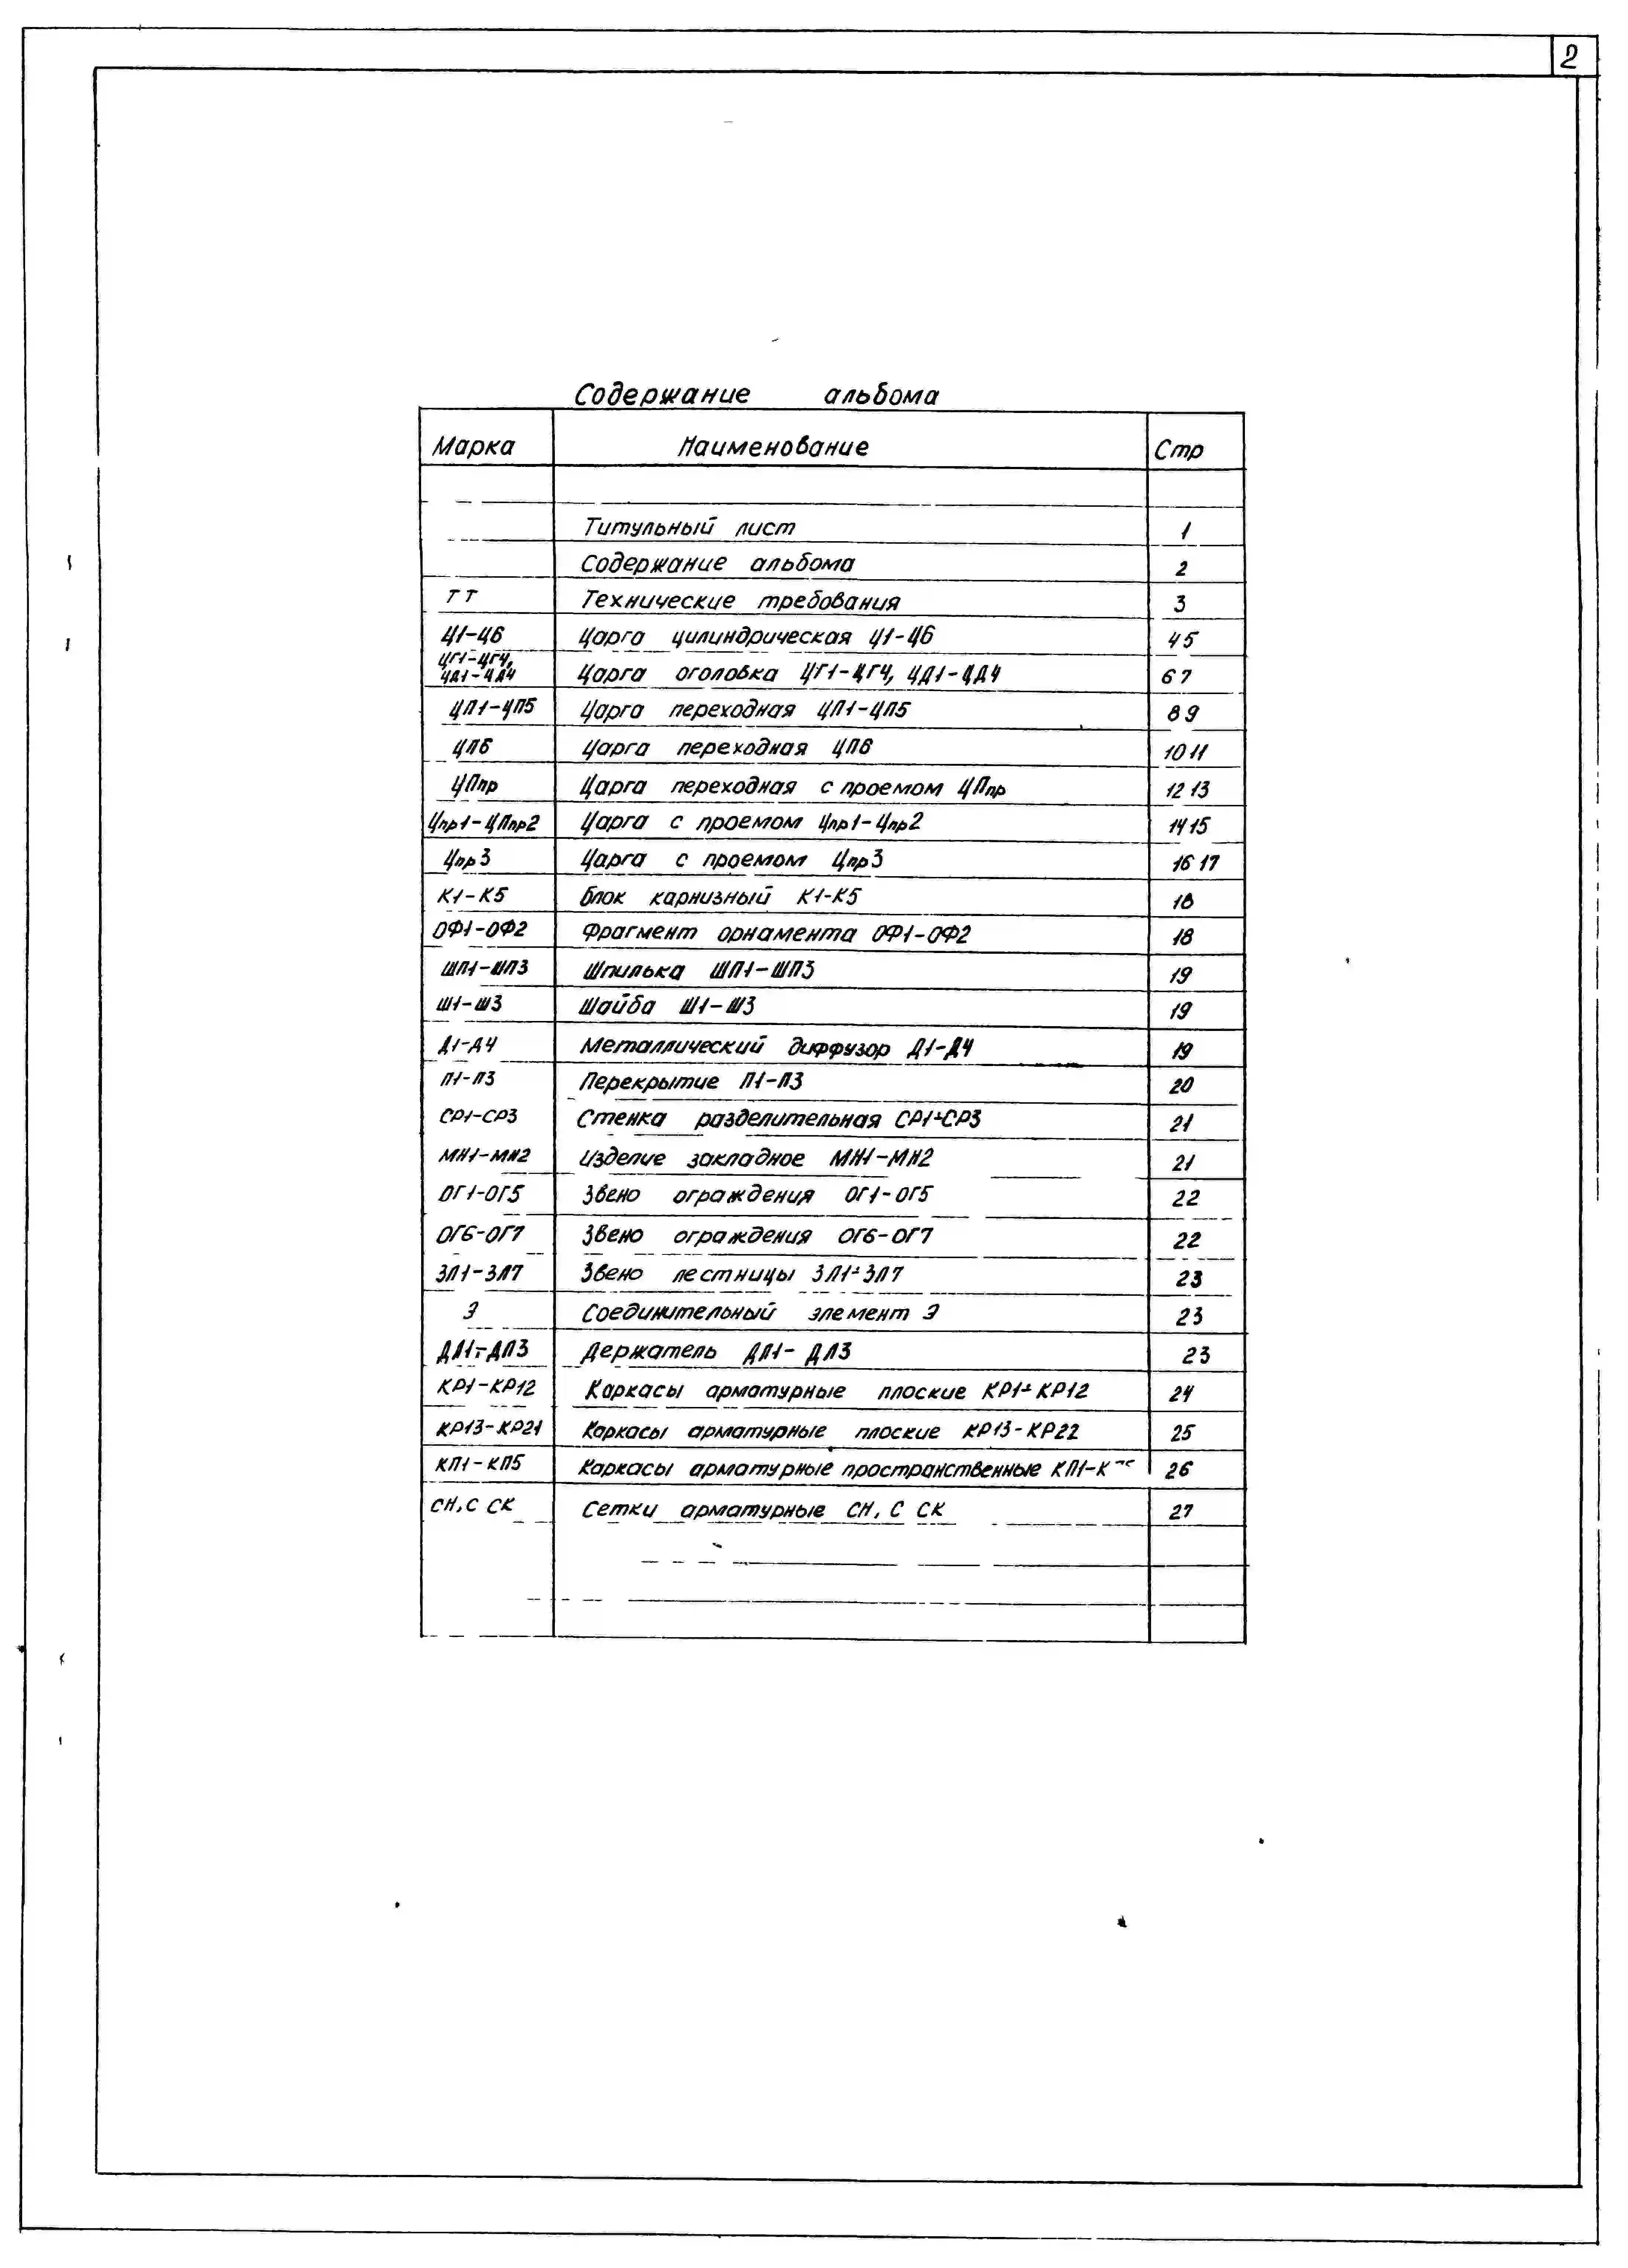 2
Содержание альбома
Марка Наименование Стр
Титульный лист 1
Содержание альбома 2
ТТ Технические требования 3
Ц1-Ц6 Царга цилиндрическая Ц1-Ц6 4 5
ЦГ1-ЦГ4,
ЦД1-ЦД4 Царга оголовка ЦГ1-ЦГ4, ЦД1-ЦД4 6 7
ЦП1-ЦП5 Царга переходная ЦП1-ЦП5 8 9
ЦП6 Царга переходная ЦП6 10 11
ЦПпр Царга переходная с проемом ЦПпр 12 13
Цпр1-ЦПпр2 Царга с проемом Цпр1-Цпр2 14 15
Цпр3 Царга с проемом Цпр3 16 17
К1-К5 Блок карнизный К1-К5 18
ОФ1-ОФ2 Фрагмент орнамента ОФ1-ОФ2 18
ШП1-ШП3 Шпилька ШП1-ШП3 19
Ш1-Ш3 Шайба Ш1-Ш3 19
Д1-Д4 Металлический диффузор Д1-Д4 19
П1-П3 Перекрытие П1-П3 20
СР1-СР3 Стенка разделительная СР1÷СР3 21
МН1-МН2 Изделие закладное МН1-МН2 21
ОГ1-ОГ5 Звено ограждения ОГ1-ОГ5 22
ОГ6-ОГ7 Звено ограждения ОГ6-ОГ7 22
ЗЛ1-ЗЛ7 Звено лестницы ЗЛ1÷ЗЛ7 23
Э Соединительный элемент Э 23
ДЛ1-ДЛ3 Держатель ДЛ1-ДЛ3 23
КР1-КР12 Каркасы арматурные плоские КР1÷КР12 24
КР13-КР21 Каркасы арматурные плоские КР13-КР22 25
КП1-КП5 Каркасы арматурные пространственные КП1-К 26
СН, С СК Сетки арматурные СН, С СК 27